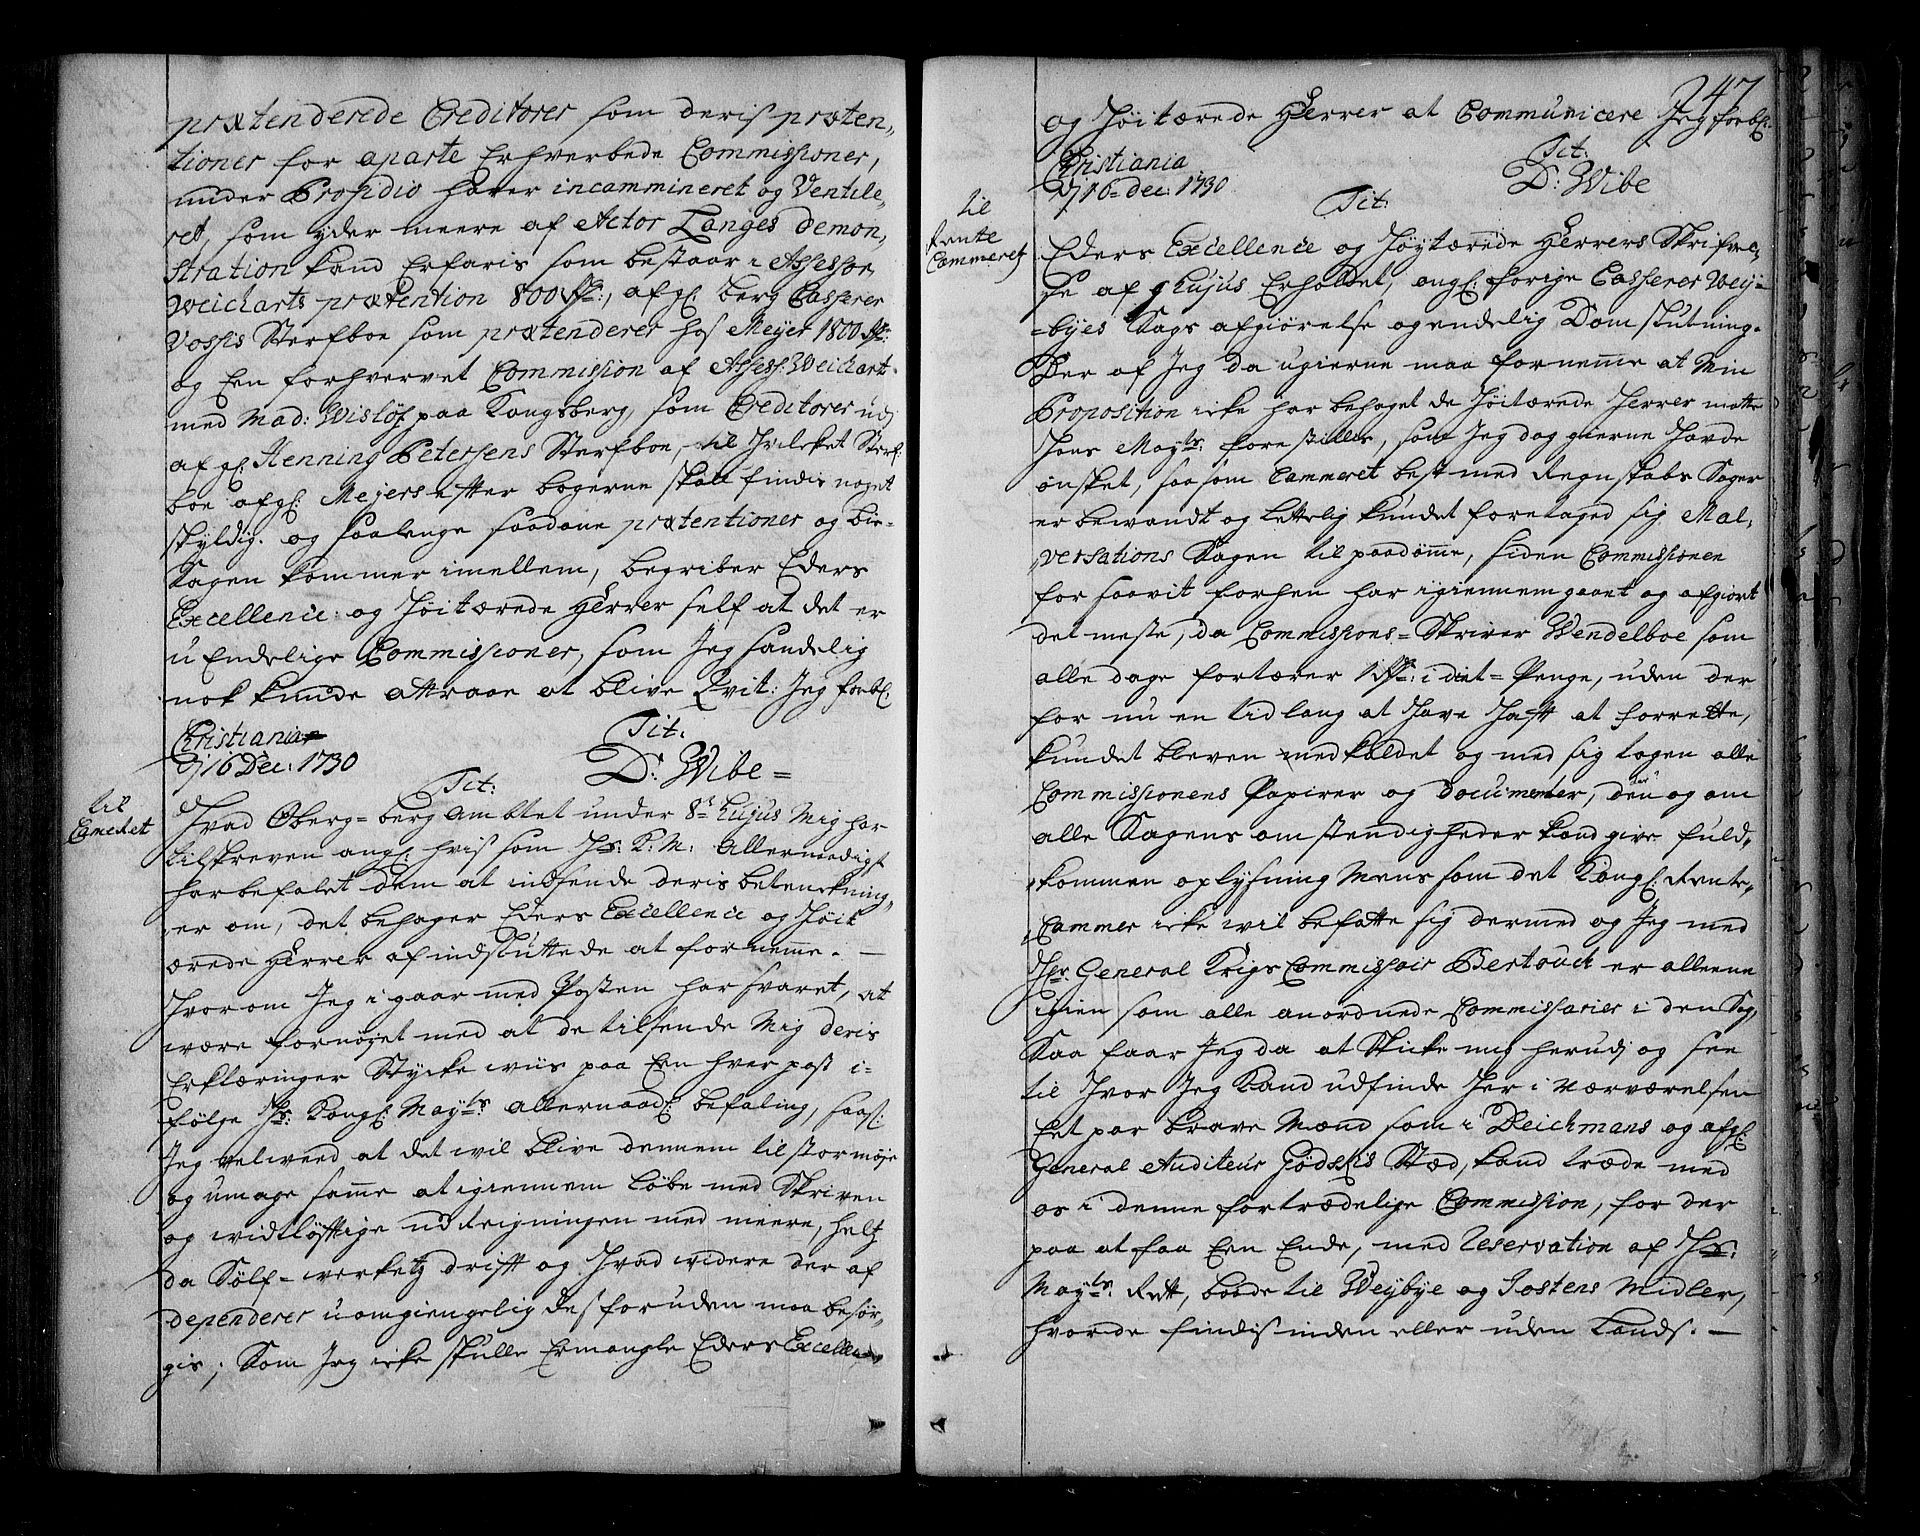 prætenderede Creditorer som deris præten,
tioner for aparte Erhverbede Commissioner,
under Præsidio haver incammineret og Ventile,
ret, som yder meere af Actor Langes demon,
stration kand Erfaris som bestaar i Assessor
Weicharts prætention 800 Rdr:, afg: berg Casserer
Vossis Sterfboe som prætenderer hos Meyer 1800 Rdr:
og Een forhvervet Commission af Assess: Weichart
med Mad: Wisløf paa Kongsberg, som Creditorer udj
afg: Henning Petersens Sterfboe, til hvilcket Sterf
boe afg: Mejers efter bøgerne skall findis noget
skyldig. og saalenge saadane prætentioner og bie-
Sagen kommer imellem, begriber Eders
Excellence og Høitærede Herrer self at det er
u Endelige Commissioner, som Jeg sandelig
nok kunde attraae at blive Qvit: Jeg forbl:
Christiania
d 16 Dec: 1730
Tit:
D: Wibe =
til
Cameret
Tit:
Hvad Oberg=berg Amblet under 8de hujus Mig har
tilskreven ang: hvis som Hs: K: M: Allernaadigst
har befalet dem at indsende deris betenckning,
er om, det behager Eders Excellence og Høit
ærede Herrer af indsluttede at fornemme. —
Hvorom Jeg i gaar med Posten har svaret, at
være fornøjet med at de tilsende Mig deris
Erklæringer Stycke wiis paa Een hver post i=
følge Hs: Kongl: Mayts: allernaad: befaling, saas:
Jeg vel weed at det wil blive dennem til stor møje
og umage samme at igiennem Løbe med Skriven
og widtløftige udReigningen med meere, helst
da Sølf-werketz drift og Hvad videre der af
dependerer uomgiengelig des foruden maa besør,
gis; Som Jeg icke skulle Ermangle Eders Excellence
247
og Høitærede Herrer at Communicere Jeg forbl:
Christiania
d 16 dec: 1730
Tit:
D: Wibe
til
Rente
Cammeret
Tit:
Eders Excellence og Høytærede Herrers Skrifvel,
se af hujus Erholdet, ang: forige Casserer Wey=
=byes Sags afgiørelse og endelig Dom slutning.
Der af Jeg da ugierne maa fornemme at Min
Proposition icke har behaget de Høitærede Herrer motte
Hans Mayts: forestilles, som Jeg dog gierne Havde
ønsket, saasom Cammeret best med Regnskabs Sager
er bewandt og lettelig kundet foretaged sig Mal,
versations Sagen til paadømme, siden Commissionen
for saavit forhen har igiennem gaaet og afgiort
det meste, da Commissions=Skriver Wendelboe som
alle dage fortærer 1 Rdr: i diet=Penge, uden der
for nu en tid lang at Have Haft at forrette,
kundet bleven medkaldet og med sig tagen alle
Commissionens Papirer og Documenter, den og om
alle Sagens omstendigheder kand give fuld,
kommen oplysning Mens som det Kongl: Rente,
Cammer icke wil befatte sig dermed og Jeg med
Hr: General Krigs Commissair Bertouch er alleene
igien som alle anordnede Commissarier i den Sag,
Saa faar Jeg da at Skicke mig herudj og see
til Hvor Jeg Kand udfinde Her i Nærværelsen
Eet par brave Mænd som i Deichmans og afg:
General Auditeur Gødshis Stæd, kand træde med
os i denne fortrædelige Commission, for der
paa at faa Een Ende, med Reservation af Hs:
Mayts: Rett, baade til Weybye og Jostens Midler,
hvor de findis inden eller uden Lands. —